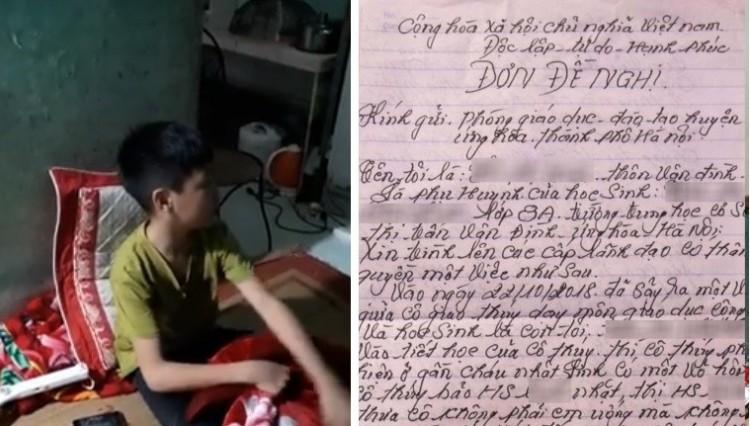 Cộng hòa xã hội chủ nghĩa Việt nam
Độc lập - tự do - Hạnh phúc
ĐƠN ĐỀ NGHỊ
Kính gửi. phòng giáo dục - đào tạo huyện
ứng hòa. thành phố Hà nội.
Tên tôi là: thôn Vân đình
Là phụ Huynh của học Sinh:
lớp 8A. trường trung học cơ S
thị trấn Vân Đình. ứng hòa Hà Nội.
Xin trình lên các cấp lãnh đạo có thẩm
quyền một việc như sau.
Vào ngày 22/10/2018 đã Sảy ra một v
giữa cô giáo thúy dạy môn giáo dục công
và học Sinh là con tôi.
vào tiết học của cô thúy. thì cô thúy ph
hiện ở gần cháu nhất có một vỏ
cô thúy bảo HS nhặt, thì HS
thưa cô không phải em uống mà không